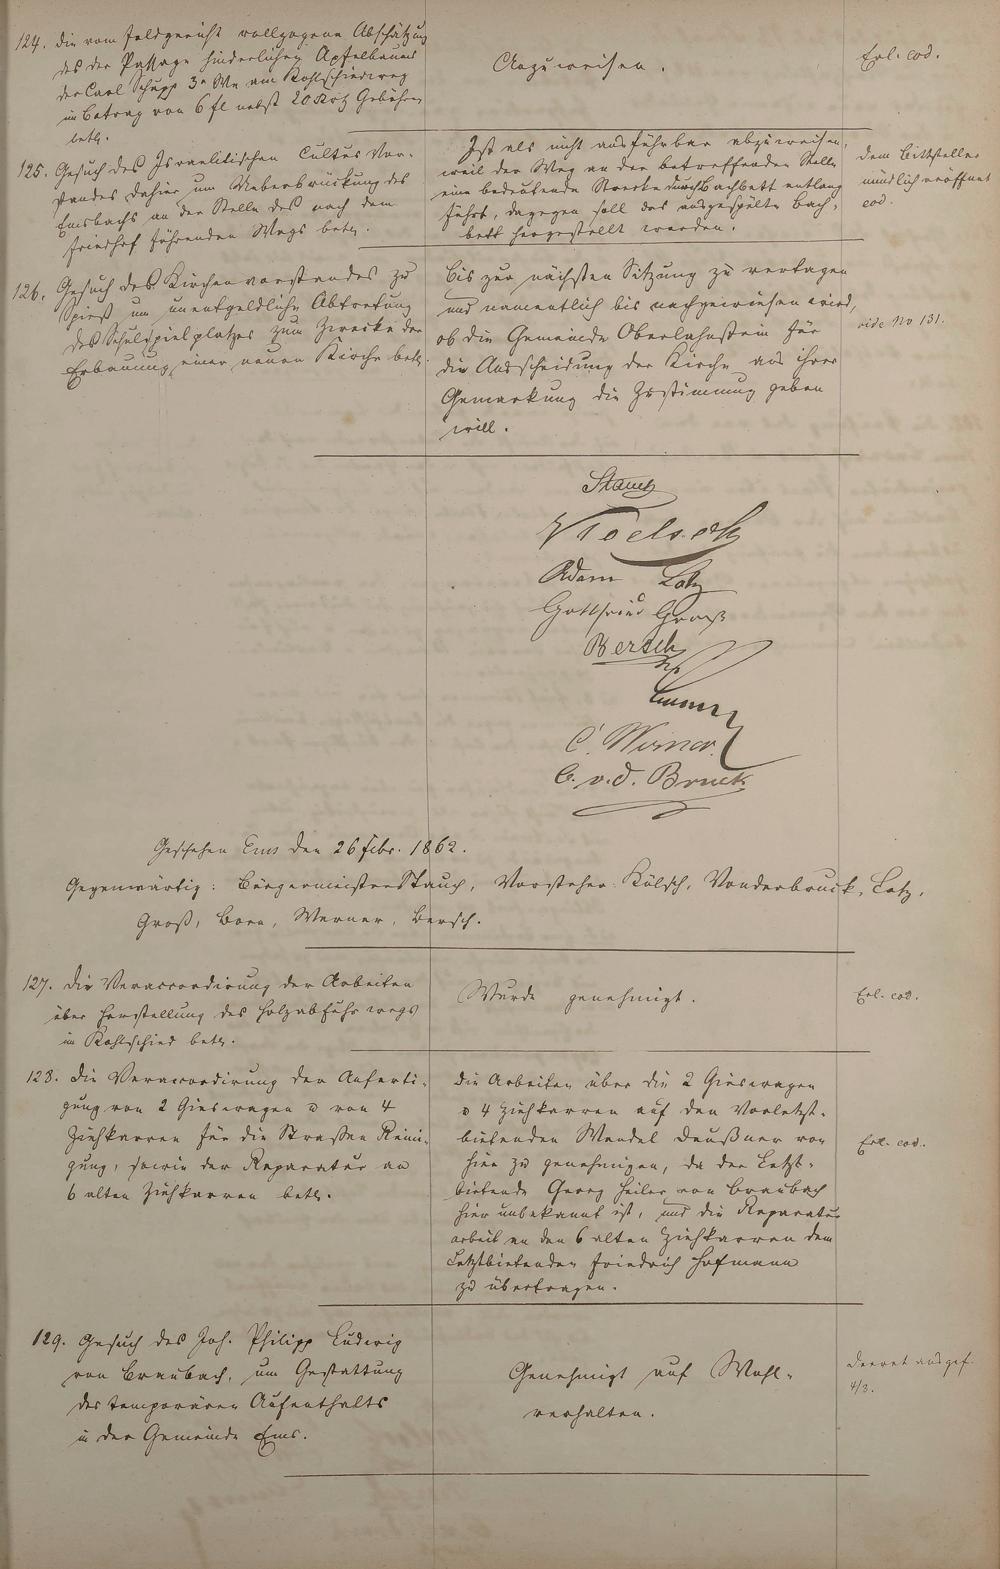 124. Die vom Feldgericht vollzogene Abschätzung
des der Passage hinderlichen Apfelbaums
des Carl Schupp 3r Wwe am Kohlschiederweg
im Betrag von 6 fl nebst 20 Kr Gebühren
betr.
Anzuweisen.
Erl. eod.
125. Gesuch des Israelitischen Cultus Vor-
standes dahier um Ueberbrückung des
Emsbachs an der Stelle des nach dem
Friedhof führenden Wegs betr.
Ist als nicht ausführbar abzuweisen,
weil der Weg an der betreffenden Stelle
eine bedeutende Strecke durchs Bachbett entlang
führt, dagegen soll das ausgespülte Bach-
bett hergestellt werden.
dem Bittsteller
mündlich eröffnet
eod.
126. Gesuch des Kirchenvorstandes zu
Spieß um unentgeldliche Abtretung
des Schulspielplatzes zum Zwecke der
Erbauung einer neuen Kirche betr.
Bis zur nächsten Sitzung zu vertagen
und namentlich bis nachgewiesen wird,
ob die Gemeinde Oberlahnstein für
die Ausscheidung der Kirche aus ihrer
Gemarkung die Zustimmung geben
will.
vide No 131.
Stauch
Koelsch
Adam Lotz
Gottfried Gross
Bersch
C. Werner.
C. v. d. Bruck.
Geschehen Ems den 26 Febr. 1862.
Gegenwärtig: Bürgermeister Stauch, Vorsteher Kölsch, Vonderbruck, Lotz,
Groß, Born, Werner, Bersch.
127. Die Veraccordirung der Arbeiten
über Herstellung des Holzabfuhrwegs
im Kohlschied betr.
Wurde genehmigt.
Erl. eod.
128. Die Veraccordirung der Anferti-
gung von 2 Gieswagen u von 4
Ziehkarren für die Straßen Reini-
gung, sowie der Reparatur an
6 alten Ziehkarren betr.
Die Arbeiten über die 2 Gieswagen
u 4 Ziehkarren auf den Vorletzt-
bietenden Wendel Deußner von
hier zu genehmigen, da der Letzt-
bietende Georg Heiler von Braubach
hier unbekannt ist, und die Reparatur
arbeit an den 6 alten Ziehkarren dem
Letztbietenden Friedrich Hofmann
zu übertragen.
Erl. eod.
129. Gesuch des Joh. Philipp Ludwig
von Braubach, um Gestattung
des temporären Aufenthalts
in der Gemeinde Ems.
Genehmigt auf Wohl-
verhalten.
Decret ausgef.
4/3.